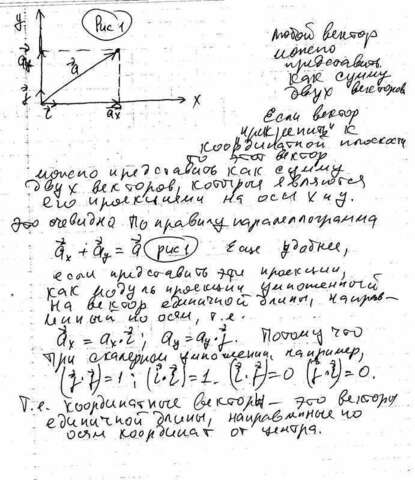 y
Рис 1
a⃗y
a⃗
j⃗
i⃗
a⃗x
x
Любой вектор
можно
представить
как сумму
двух векторов
Если вектор
"прикрепить" к
координатной плоскости
то этот вектор
можно представить как сумму
двух векторов, которые являются
его проекциями на оси x и y.
Это очевидно по правилу параллелограмма
a⃗x + a⃗y = a⃗ рис 1 Еще удобнее,
если представить эти проекции,
как модуль проекции умноженный
на вектор единичной длины, направ-
ленный по оси, т.е.
a⃗x = ax·i⃗; a⃗y = ay·j⃗. Потому что
при скалярном умножении, например,
(j⃗·j⃗)=1; (i⃗·i⃗)=1. (i⃗·j⃗)=0 (j⃗·i⃗)=0.
Т.е. координатные векторы – это векторы
единичной длины, направленные по
осям координат от центра.